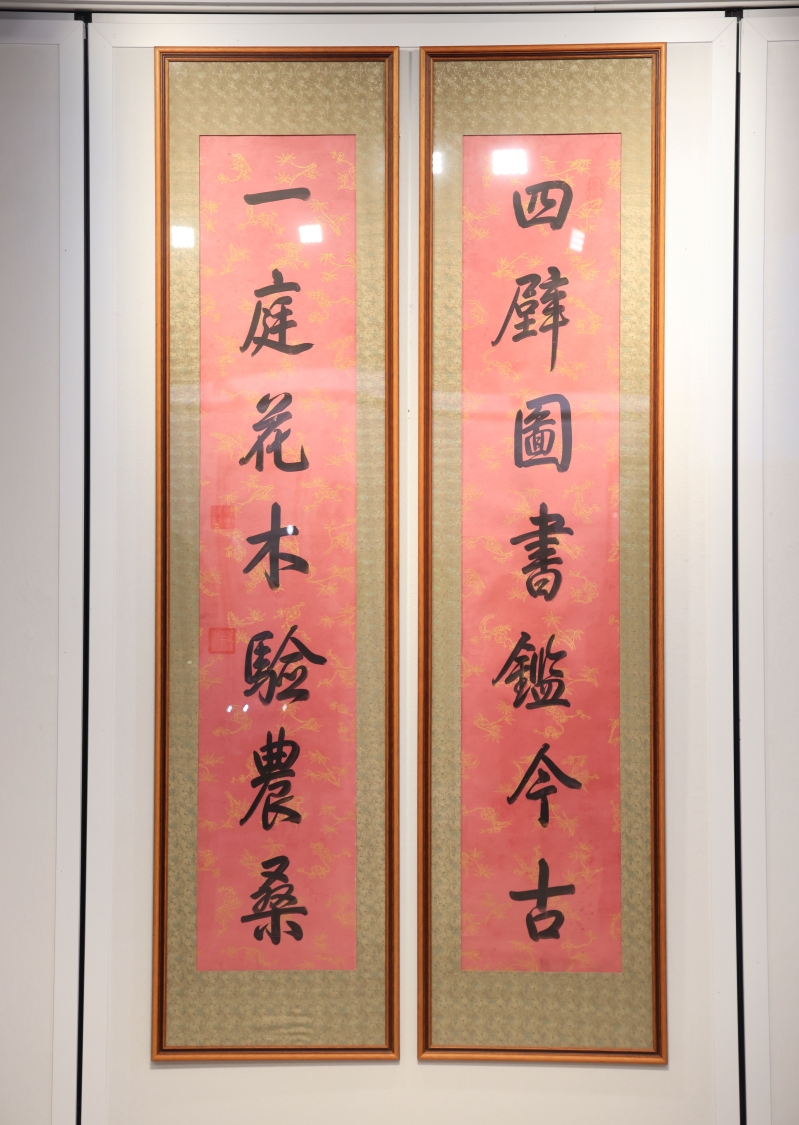 四壁圖書鑑今古
一庭花木驗農桑